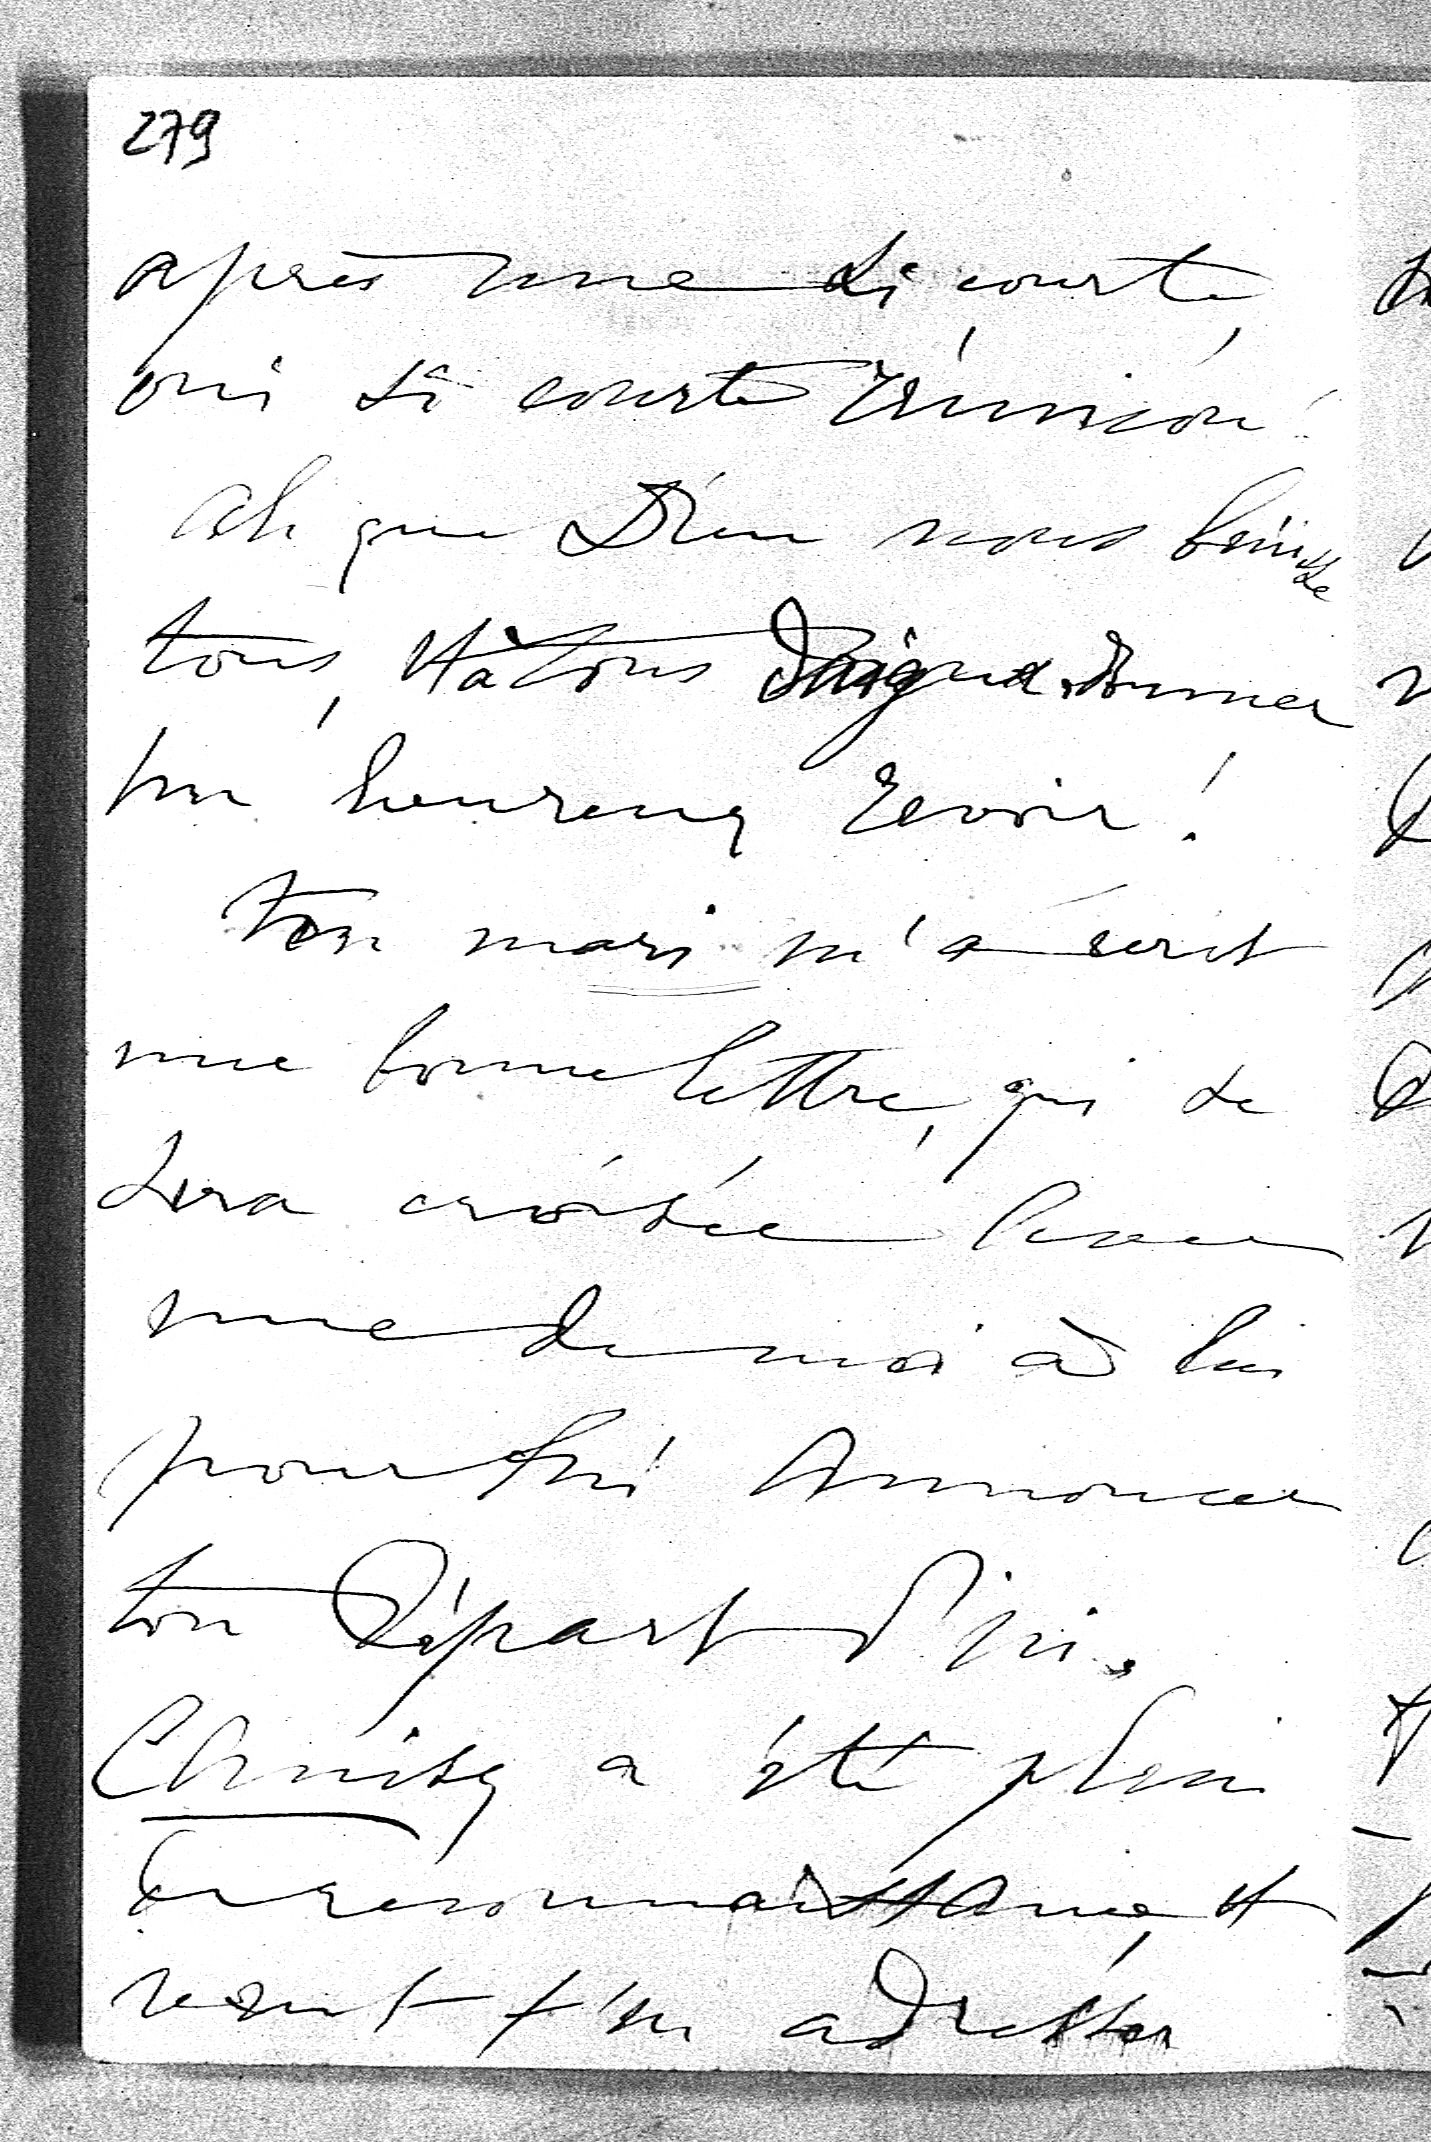 279
après une si courte,
oui si courte réunion!
Ah que Dieu nous bénisse
tous, et à tous daigne donner
un heureux revoir!
Ton mari m'a écrit
une bonne lettre, qui se
sera croisée avec
une de moi à lui
pour lui annoncer
ton Départ d'ici.
a été plein
de reconnaissance, et
veut t'en adresser